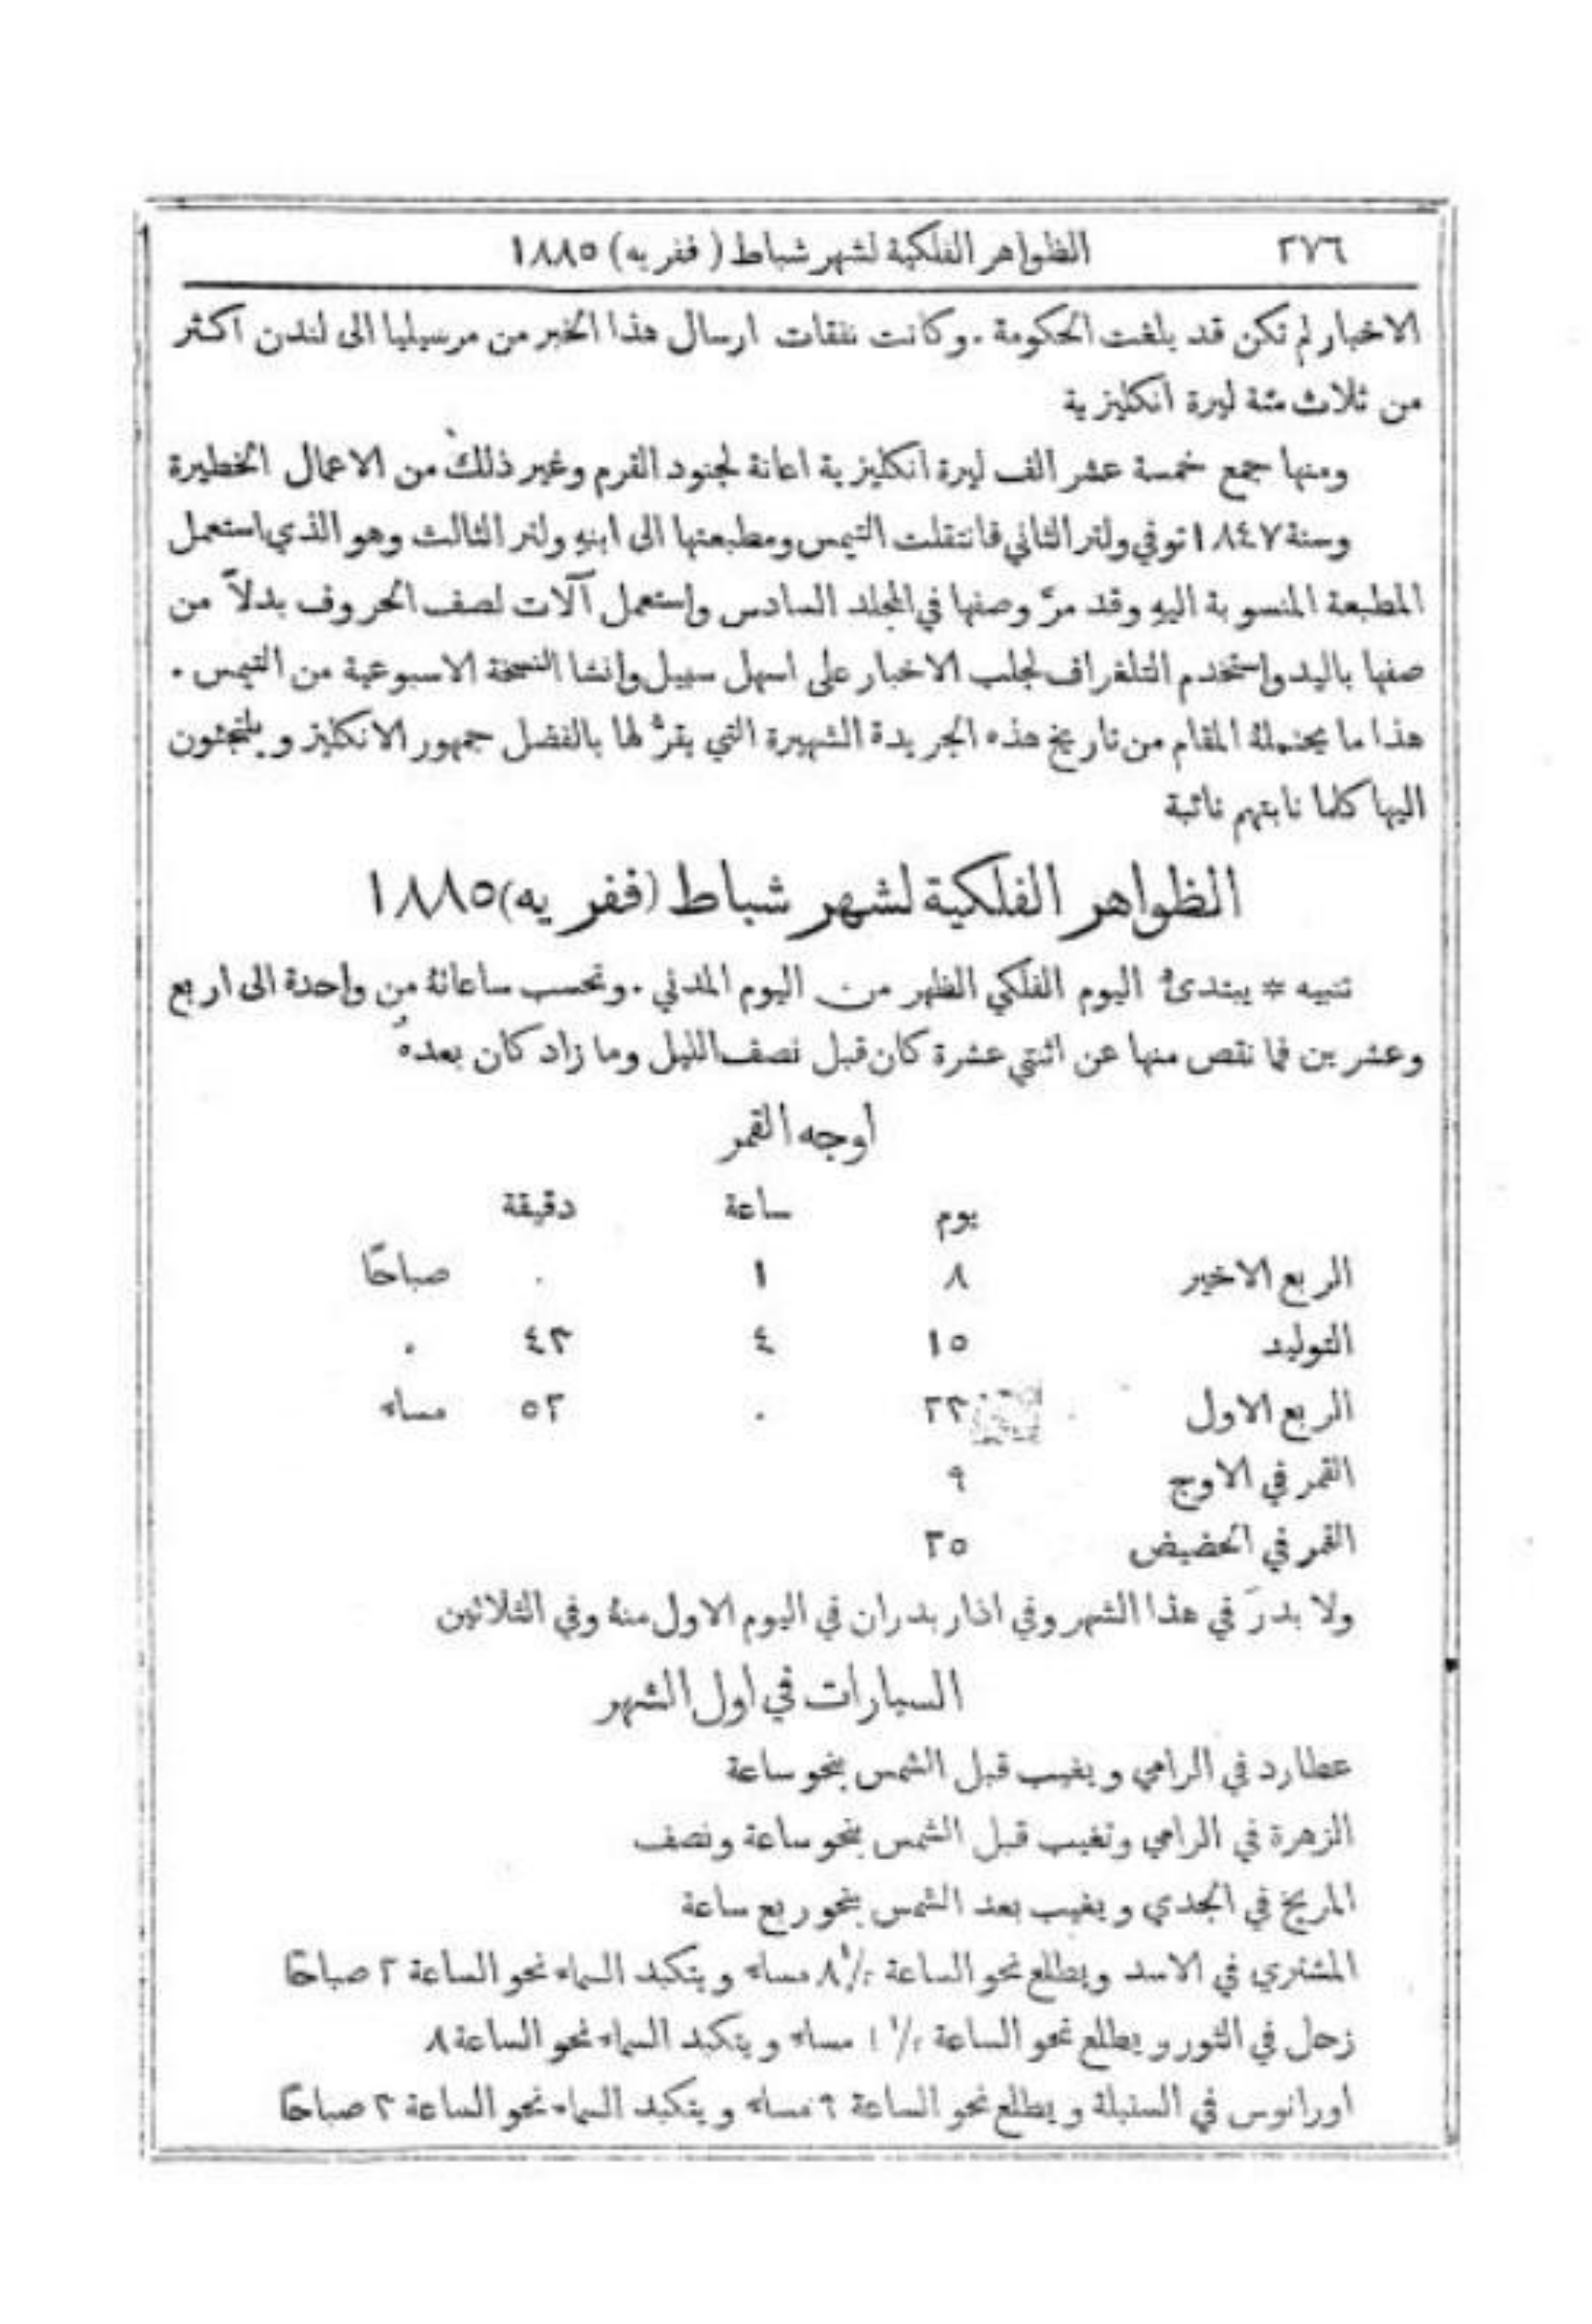 ٢٧٦ الظواهر الفلكية لشهر شباط (ففريه) ١٨٨٥
الاخبار لم تكن قد بلغت الحكومة . وكانت نفقات ارسال هذا الخبر من مرسيليا الى لندن اكثر
من ثلاث مئة ليرة انكليزية
ومنها جمع خمسة عشر الف ليرة انكليزية اعانة لجنود القرم وغير ذلك من الاعمال الخطيرة
وسنة ١٨٤٧ توفي ولتر الثاني فانتقلت التيمس ومطبعتها الى ابنهِ ولتر الثالث وهو الذي استعمل
المطبعة المنسوبة اليهِ وقد مرَّ وصفها في المجلد السادس واستعمل آلات لصف الحروف بدلاً من
صفها باليد واستخدم التلغراف لجلب الاخبار على اسهل سبيل وانشا النسخة الاسبوعية من التيمس .
هذا ما يحتملهُ المقام من تاريخ هذه الجريدة الشهيرة التي يقرُّ لها بالفضل جمهور الانكليز ويلتجئون
اليها كلما نابتهم نائبة
الظواهر الفلكية لشهر شباط (ففريه) ١٨٨٥
تنبيه * يبتدئُ اليوم الفلكي الظهر من اليوم المدني . وتحسب ساعاتهُ من واحدة الى اربع
وعشرين فما نقص منها عن اثنتي عشرة كان قبل نصف الليل وما زاد كان بعدهُ
اوجه القمر
يوم ساعة دقيقة
الربع الاخير ٨ ١ ٠ صباحًا
التوليد ١٥ ٤ ٤٣ ٠
الربع الاول ٢٢ ٠ ٥٢ مساء
القمر في الاوج ٩
القمر في الحضيض ٢٥
ولا بدرَ في هذا الشهر وفي اذار بدران في اليوم الاول منهُ وفي الثلاثين
السيارات في اول الشهر
عطارد في الرامي ويغيب قبل الشمس بنحو ساعة
الزهرة في الرامي وتغيب قبل الشمس بنحو ساعة ونصف
المريخ في الجدي ويغيب بعد الشمس بنحو ربع ساعة
المشتري في الاسد ويطلع نحو الساعة ½٨ مساء ويتكبد السماء نحو الساعة ٢ صباحًا
زحل في الثور ويطلع نحو الساعة ½١ مساء ويتكبد السماء نحو الساعة ٨
اورانوس في السنبلة ويطلع نحو الساعة ٩ مساء ويتكبد السماء نحو الساعة ٣ صباحًا